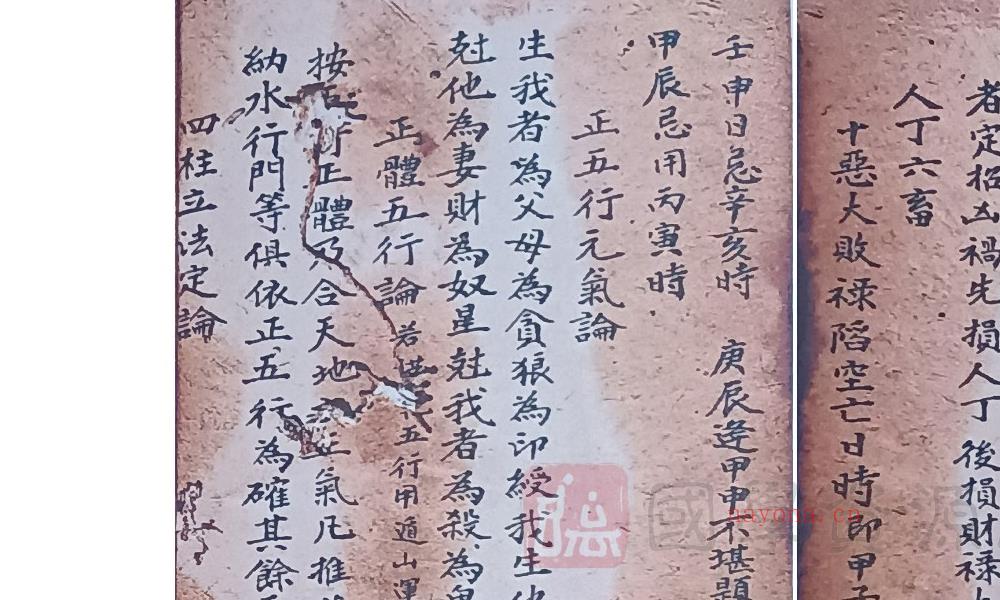 者定招凶禍先損人丁後損財祿
人丁六畜
十惡大敗祿陷空亡日時即甲
壬申日忌辛亥時 庚辰逢甲申不堪題
甲辰忌用丙寅時
正五行元氣論
生我者為父母為貪狼為印綬我生
尅他為妻財為奴星尅我者為殺為
正體五行論 若 五行用遁山運
按 正體乃合天地 正氣凡推
納水行門等俱依正五行為確其餘
四柱立法定論
國學 源
nayona.cn